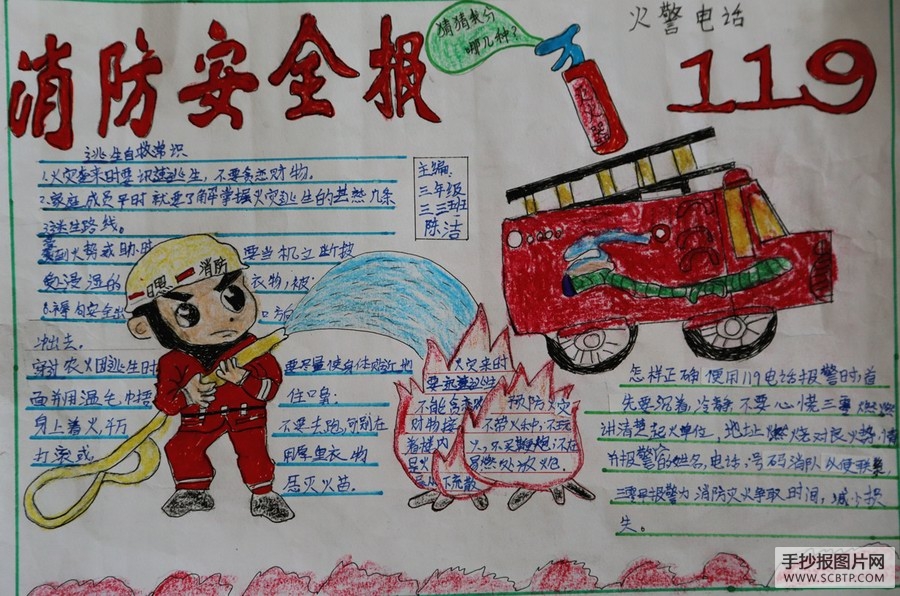 消防安全报
猜猜火分
哪几种?
火警电话
119
灭火器
主编:
三年级
三三班
陈洁
逃生自救常识
1.火灾袭来时要迅速逃生,不要贪恋财物。
2.家庭成员平时就要了解掌握火灾逃生的基然几条
逃生路线。
受到火势威胁时 要当机立断披
浸湿的 衣物,被
向安全出 口方
冲出去。
穿过浓火因逃生时 要尽量使身体贴近地
面并用湿毛巾捂 住口鼻
身上着火,千万 不要去跑,可就在
打滚或 用厚重衣物
压灭火苗。
日照 消防
火灾来时
要迅速逃生
不能贪恋
财物
着楼内
预防火灾
不带火种,不玩
火,不买鞭炮,不在
易燃处放火炮。
怎样正确使用119电话报警时首
先要沉着,冷静不要心慌三事
讲清楚起火单位,地址燃烧对
报警官的姓名,电话,号码消队以便联
三零早报警力消防灭火争取时间,减少损
失。
手抄报图片网
WWW.SCBTP.COM